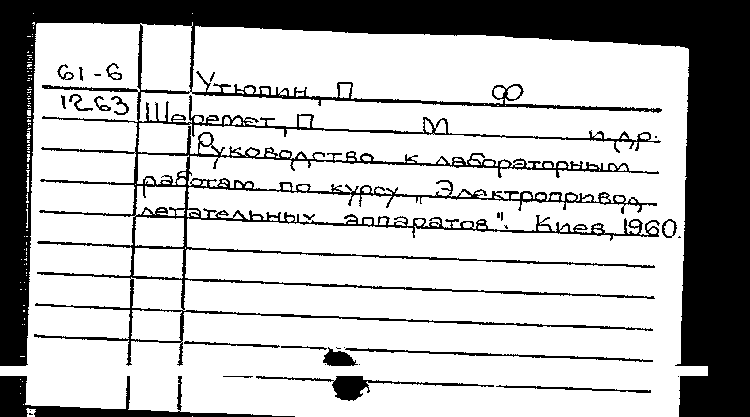 61-6 Утюпин, П Ф
1263 Шеремет, П М и др.
Руководство к лабораторным
работам по курсу „Электропривод
летательных аппаратов". Киев, 1960.